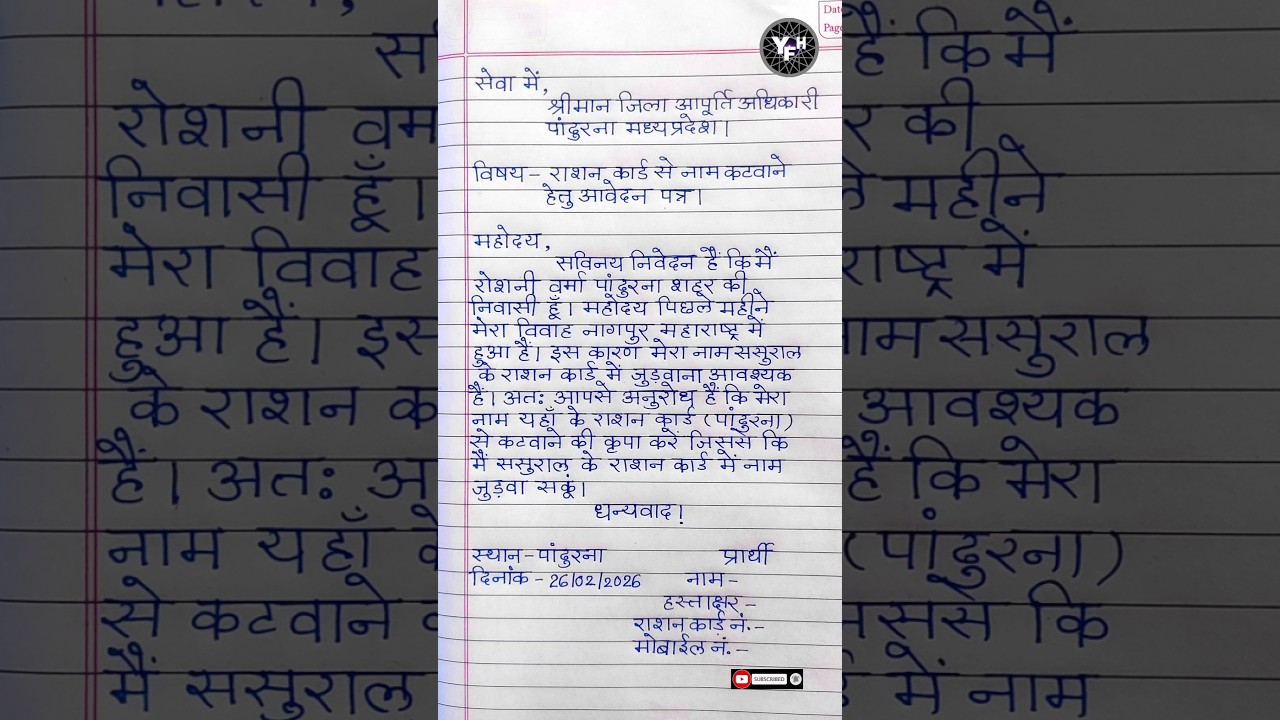 Date
Page
Y H
F
सेवा में,
श्रीमान जिला आपूर्ति अधिकारी
पांढुरना मध्यप्रदेश।
विषय- राशन कार्ड से नाम कटवाने
हेतु आवेदन पत्र।
महोदय,
सविनय निवेदन हैं कि मैं
रोशनी वर्मा पांढुरना शहर की
निवासी हूँ। महोदय पिछले महीने
मेरा विवाह नागपुर महाराष्ट्र में
हुआ हैं। इस कारण मेरा नाम ससुराल
के राशन कार्ड में जुड़वाना आवश्यक
हैं। अतः आपसे अनुरोध हैं कि मेरा
नाम यहाँ के राशन कार्ड (पांढुरना)
से कटवाने की कृपा करें जिससे कि
मैं ससुराल के राशन कार्ड में नाम
जुड़वा सकूं।
धन्यवाद!
स्थान-पांढुरना प्रार्थी
दिनांक - 26/02/2026 नाम-
हस्ताक्षर-
राशन कार्ड नं.-
मोबाईल नं.-
SUBSCRIBED